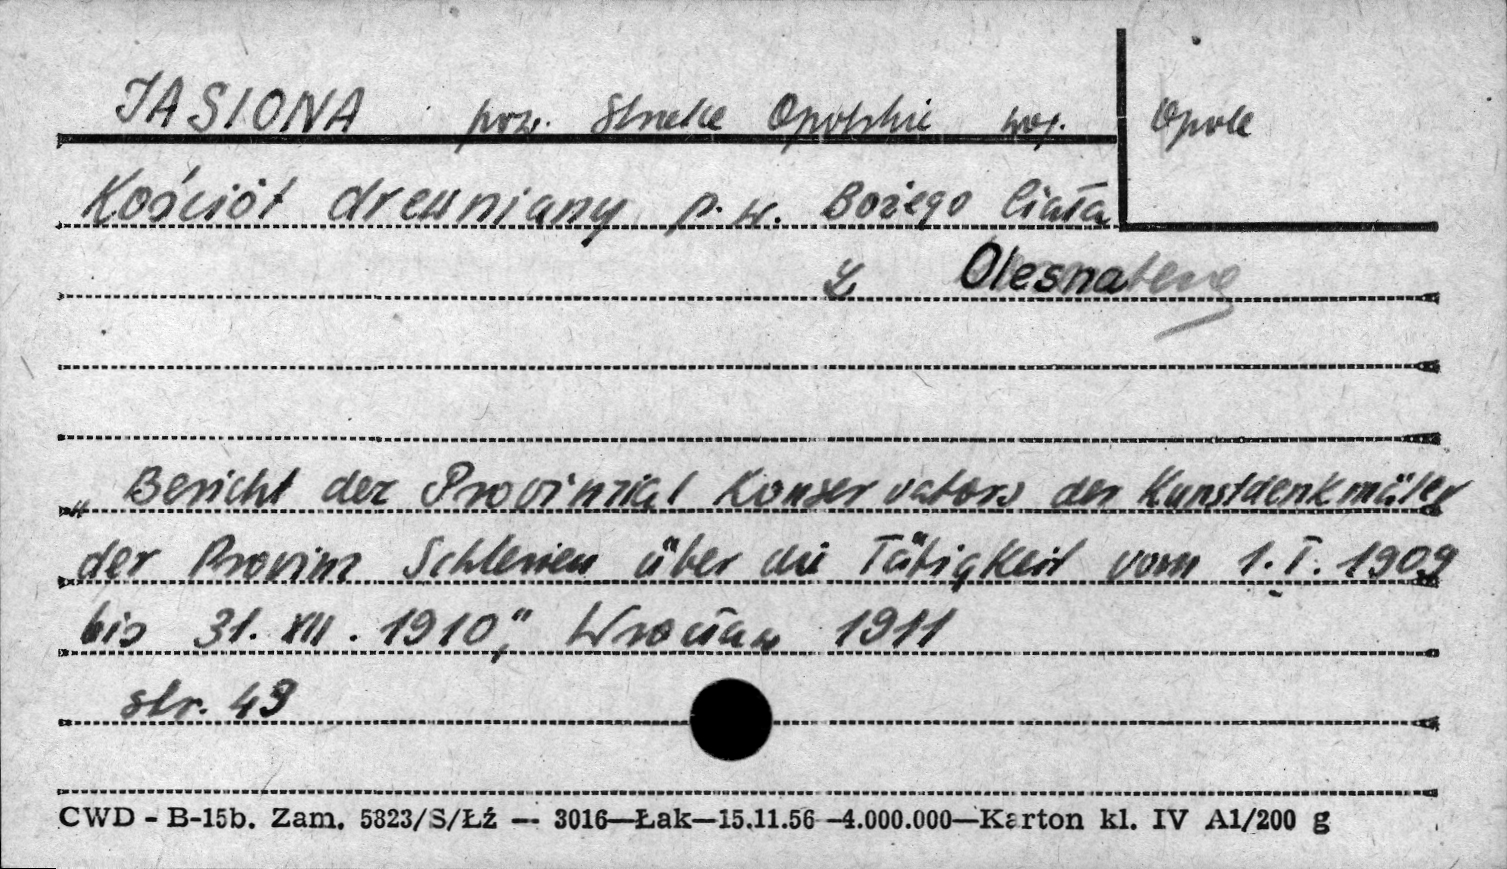 JASIONA pow. Strzelce Opolskie woj. Opole
Kościół drewniany p.w. Bożego Ciała
z Olesna
„Bericht der Provinzial Konservators der Kunstdenkmäler
der Provinz Schlesien über die Tätigkeit vom 1.I.1909
bis 31.XII.1910", Wrocław 1911
str. 49
CWD - B-15b. Zam. 5823/S/Łź — 3016—Łak—15.11.56 —4.000.000—Karton kl. IV A1/200 g